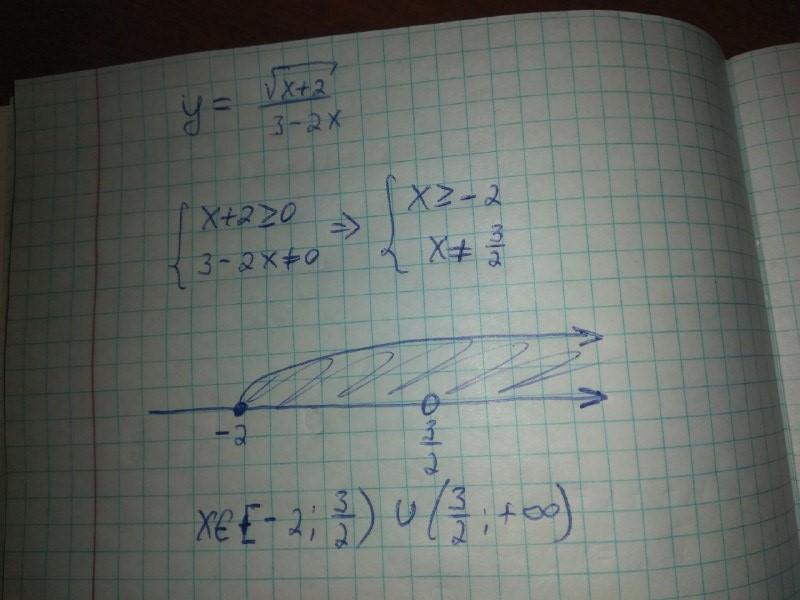 y = √(x+2) / (3-2x)
{ x+2≥0 ⇒ { x≥-2
{ 3-2x≠0 { x≠ 3/2
-2 3/2
x∈[-2; 3/2) ∪ (3/2; +∞)